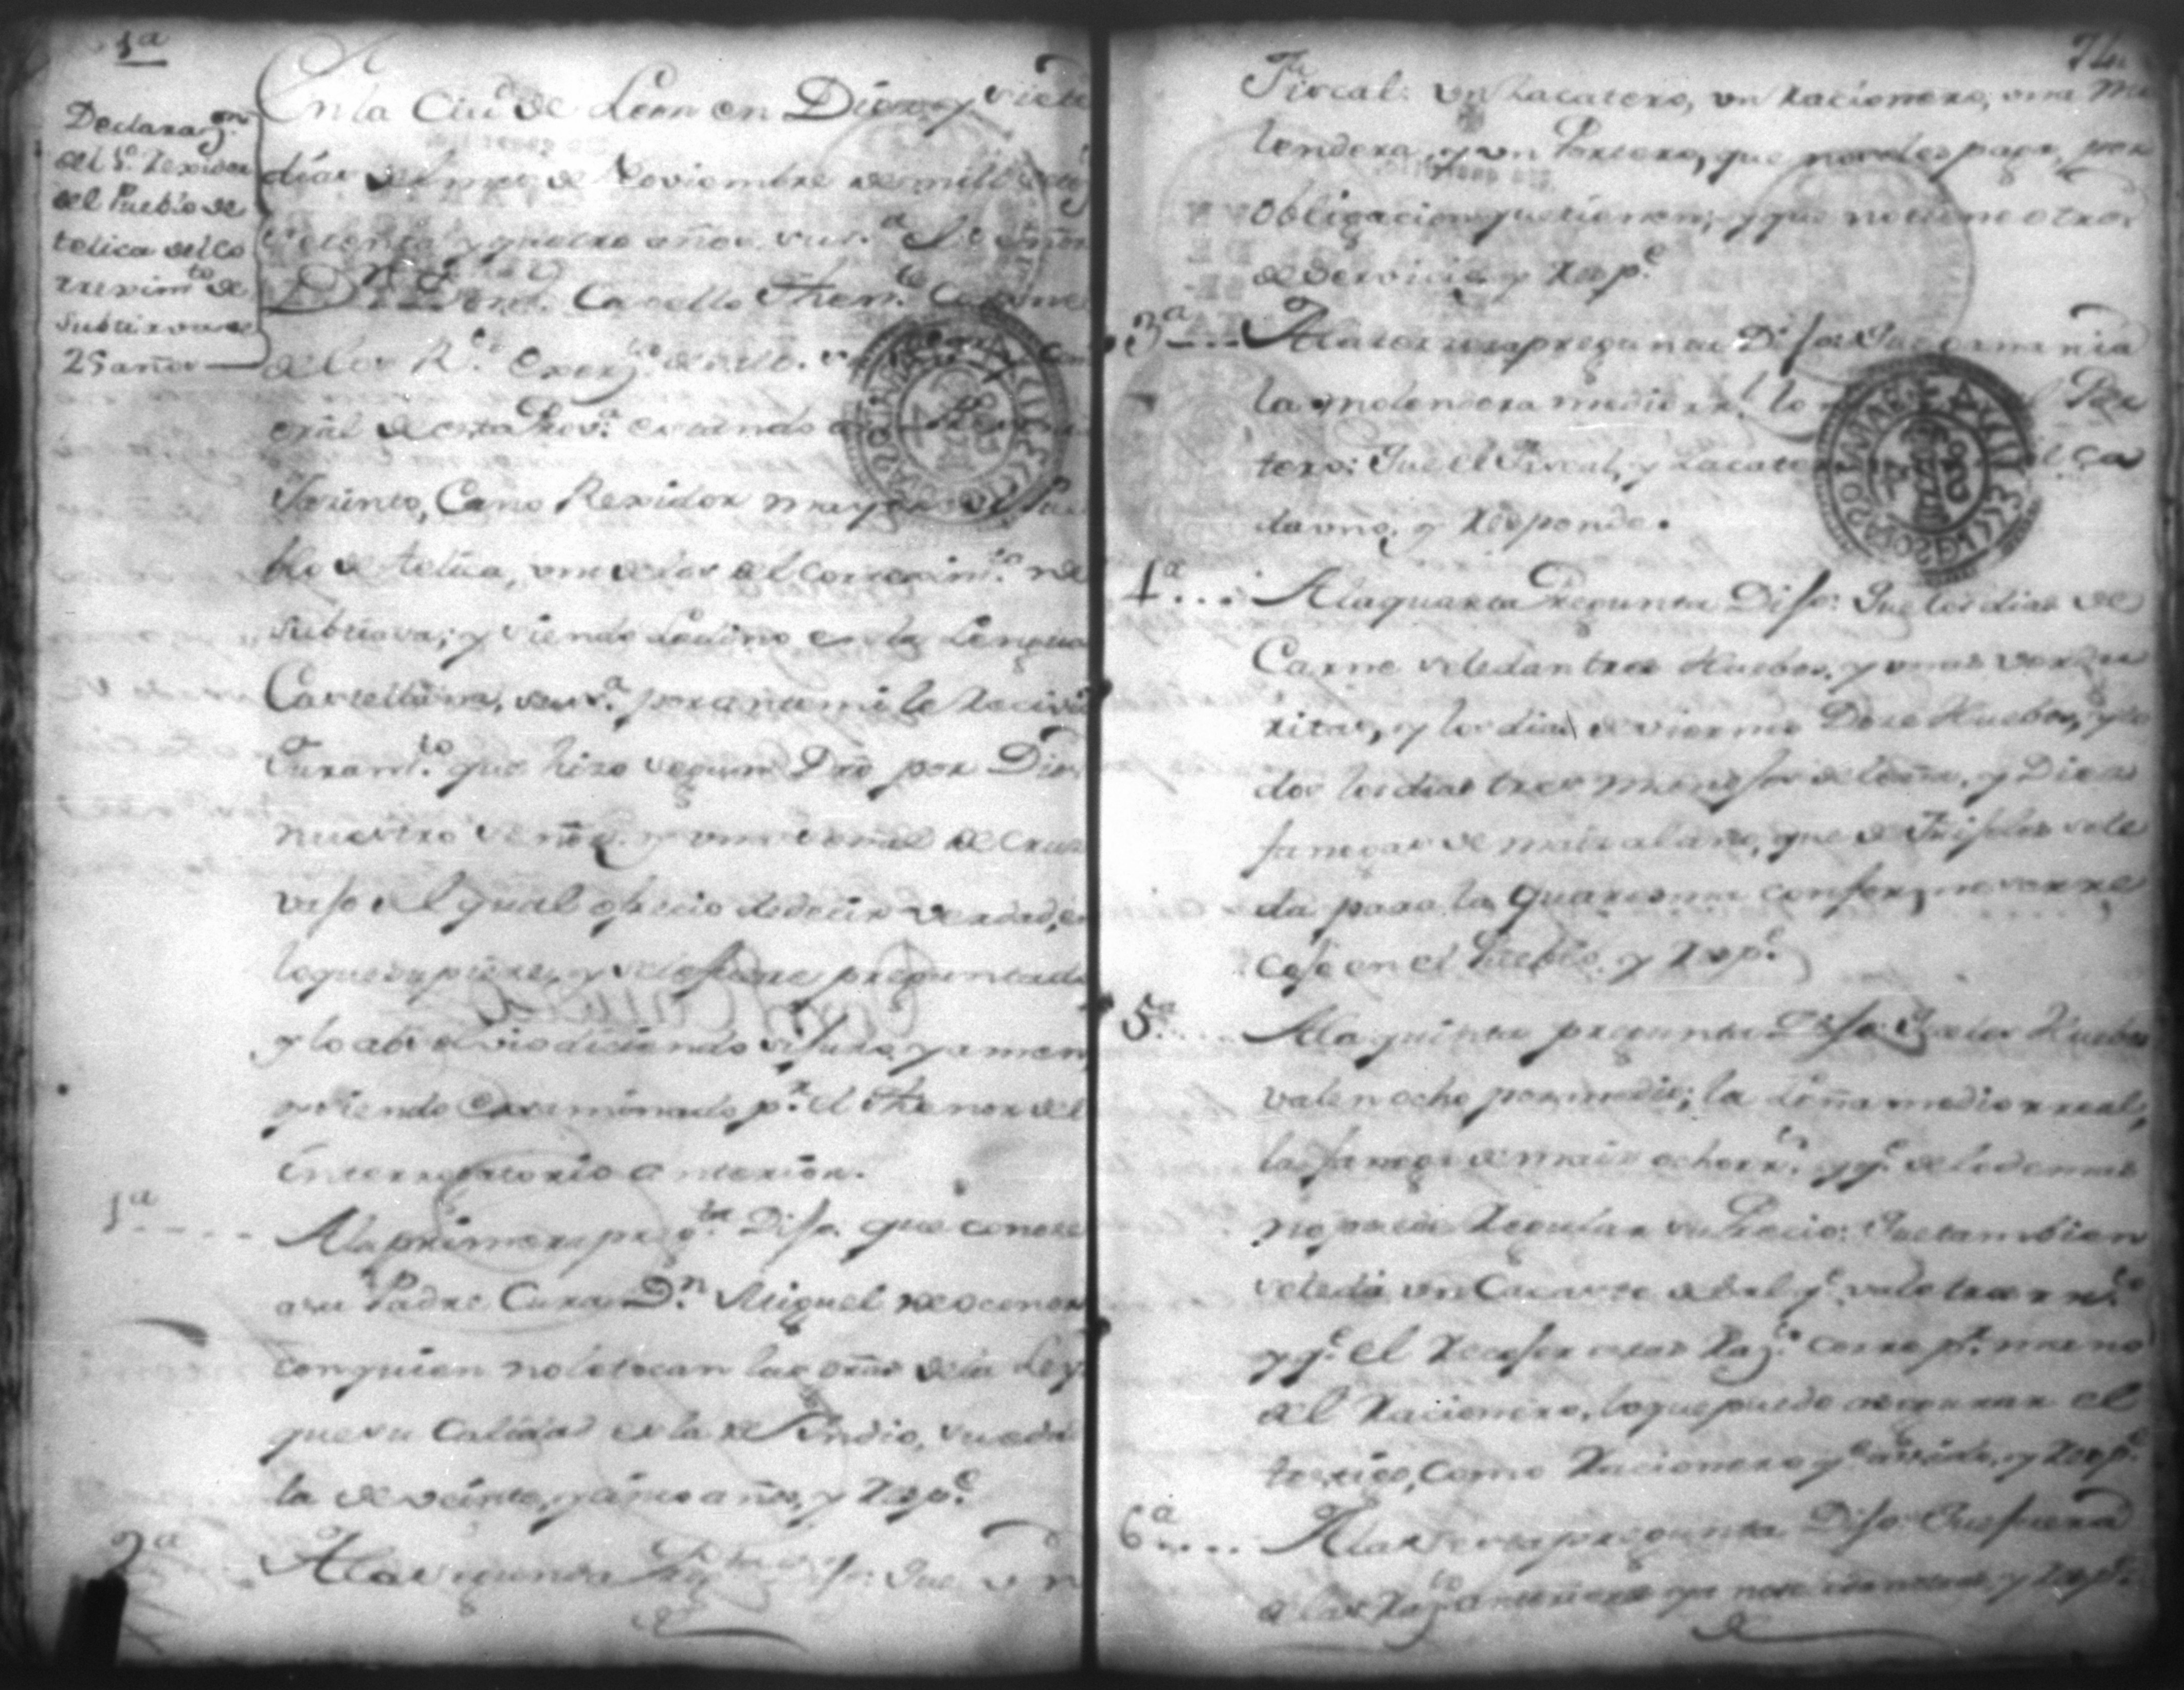 1ª
Declaraz.on
del S.º Rexidor
del Pueblo de
telica del Co
rregim.to de
Subtiava de
25 años
En la Ciu.d de Leon en Diez y siete
dias del mes de Noviembre de mill setez.
setenta y quatro años. su s.ª el Señor
D.n Cavello Then.te Corone
de los R.s Exerz.tos de
eral de esta Prov.ª estando
Jasinto, Cano Rexidor mayor del Pue
blo de telica, uno de los del Corregim.to de
Subtiava; y siendo Ladino en la Lengua
Castellana, su s.ª por ante mi le Recivió
Juram.to que hizo segun Dro por Dios
nuestro Señor y una señal de Cruz
vajo del qual ofrecio de decir verdad, en
lo que supiere, y se le fuere preguntado
y lo absolvio diciendo si juro, y amen
y siendo Examinado p.r el Thenor del
interrogatorio anterior.
1ª
A la primera preg.ta Dijo. que conose
a su Padre Cura D.n Miguel
con quien no le tocan las de la Ley
que su Calidad es la de Yndio, su edad
la de veinte, y cinco años, y Resp.e
2ª
A la segunda Preg.ta Dijo: Que un
74
Fiscal: un Zacatero, un Racionero, una Mo
lendera, y un Portero, que no les paga, por
obligacion que tienen; y que no tiene otros
de servicio y Resp.e
3ª
A la tercera pregunta Dijo: Que gana
la molendera medio rr.l lo el Por
tero: Que el Fiscal, y Zacatero
da uno, y Responde.
4ª
A la quarta Pregunta Dijo: Que los dias de
Carne se le dan tres Huebos, y unas verdu
ritas, y los dias de viernes Doce Huebos, y to
dos los dias tres manojos de Leña, y Diez
fanegas de mais al año, que de Frijoles se le
da para la quaresma conforme se rre
coje en el Pueblo, y Resp.e
5ª
A la quinta pregunta Dijo: Que los Huebos
valen ocho por medio; la Leña medio rreal,
la fanega de mais ocho rr.s y q.e de lo demas
no puede Regular su Precio: Que tambien
se le da un Cacaste de Sal q.e vale tres rr.s
y q.e el Recojer estas Raz.s corre p.r mano
del Racionero, lo que puede asegurar el
testigo, como Racionero q.e a sido, y Resp.e
6ª
A la sexta pregunta Dijo: Que fuera
de las Raz.s anteriores no y Resp.e